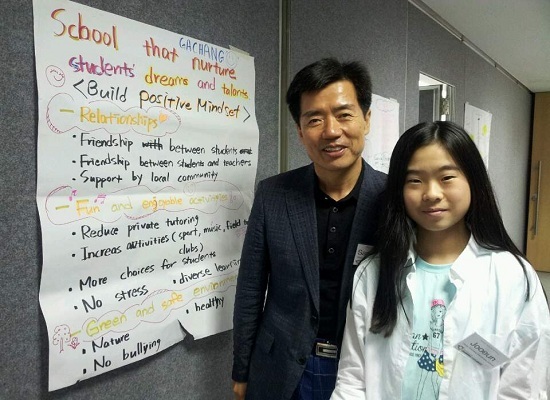 School that nurture
GACHANG
students' dreams and talents
<Build positive Mindset>
- Relationships
• Friendship with between students and
• Friendship between students and teachers
• Support by local community
- Fun and enjoyable activities
• Reduce private tutoring
• Increas activities (sport, music, field
clubs)
• More choices for students
• No stress
• diverse
- Green and safe
• Nature
• healthy
• No bullying
67
Jaoeun